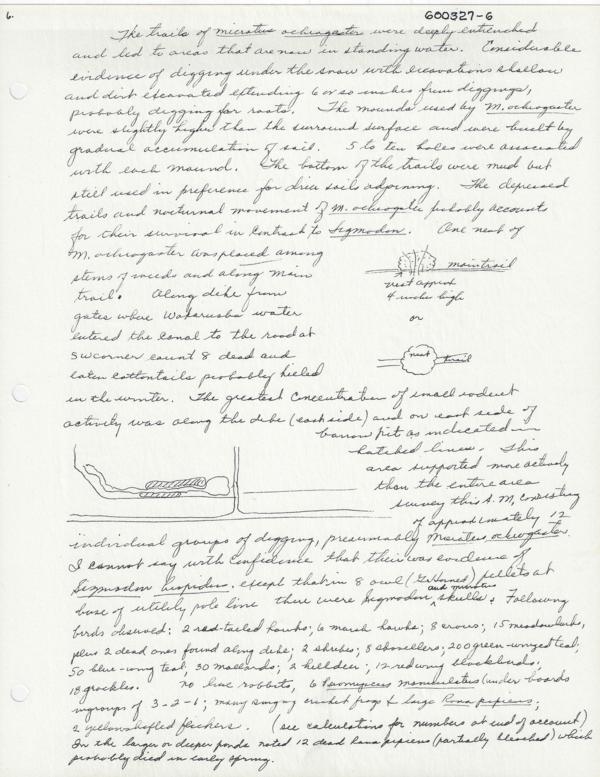 6.
600327-6
The trails of microtus ochrogaster were deeply entrenched
and led to areas that are now in standing water. Considerable
evidence of digging under the snow with excavations shallow
and dirt excavated extending 6 or so inches from diggings,
probably digging for roots. The mounds used by M. ochrogaster
were slightly higher than the surround surface and were built by
gradual accumulation of soil. 5 to ten holes were associated
with each mound. The bottom of the trails were mud but
still used in preference for drier soils adjoining. The depressed
trails and nocturnal movement of M. ochrogaster probably accounts
for their survival in contrast to Sigmodon. One nest of
M. ochrogaster was placed among
stems of weeds and along main
trail. Along dike from
gates where Wakarusha water
entered the canal to the road at
SW corner count 8 dead and
eaten cottontails probably killed
in the winter. The greatest concentration of small rodent
main trail
nest approx
4 inches high
or
nest trail
activity was along the dike (east side) and on east side of
barrow pit as indicated in
hatched lines. This
area supported more actively
than the entire area
survey this A.M, consisting
of approximately 12
individual groups of digging, presumably Microtus ochrogaster.
I cannot say with confidence that their was evidence of
Sigmodon hispidus. except that in 8 owl (G. Horned) pellets at
base of utility pole line there were Sigmodon and microtus skulls. Following
birds observed: 2 red-tailed hawks; 6 marsh hawks; 8 crows; 15 meadowlarks,
plus 2 dead ones found along dike; 2 shrikes; 8 shovellers; 200 green-winged teal;
50 blue-wing teal; 30 mallards; 2 killdeer; 12 redwing blackbirds;
18 grackles. no live rabbits, 6 Peromyscus maniculatus (under boards
in groups of 3-2-1; many singing cricket frogs & large Rana pipiens;
2 yellowshafted flickers. (see calculations for numbers at end of account)
In the larger or deeper ponds noted 12 dead Rana pipiens (partially bleached) which
probably died in early spring.